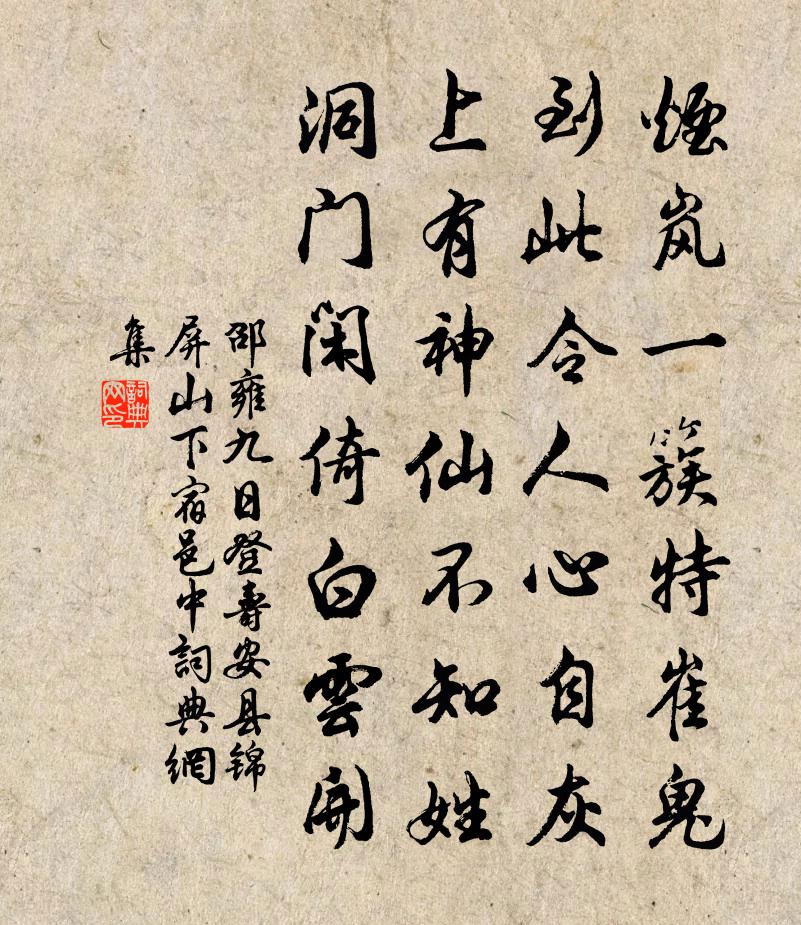 煙岚一簇特崔鬼
到此令人心自灰
上有神仙不知姓
洞门闲倚白雲開
邵雍九日登壽安县锦
屏山下宿邑中詞典網
集
詞典
网印